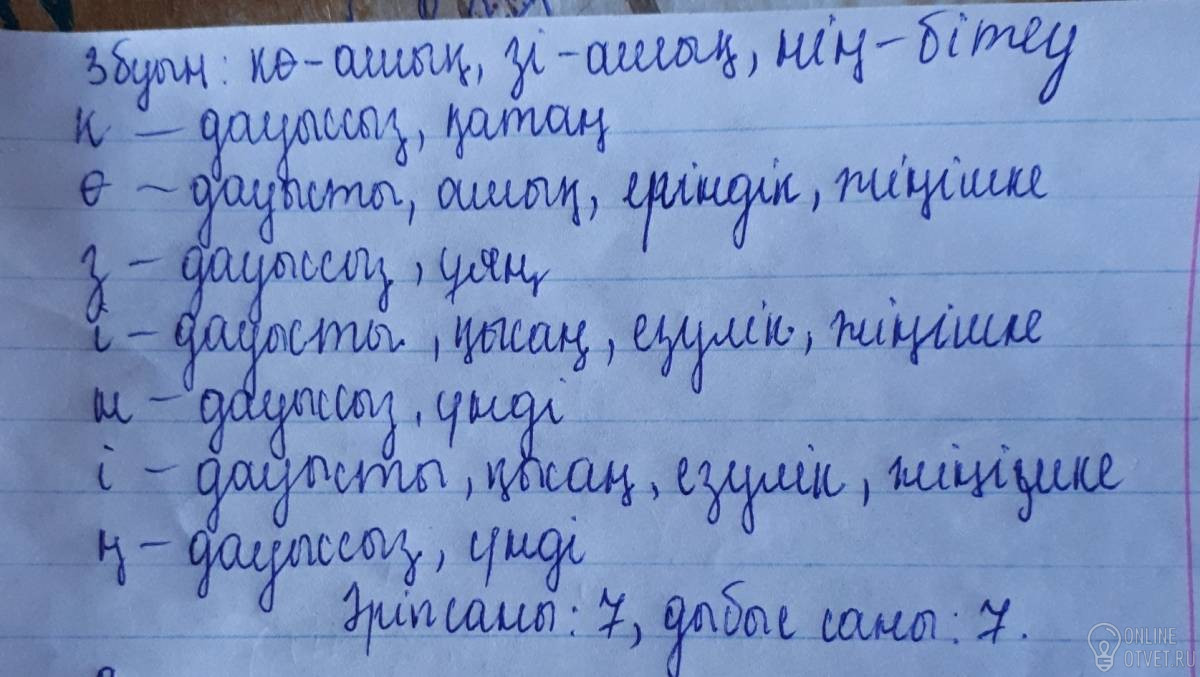 3 буын: кө-ашық, зі-ашық, нің-бітеу
к – дауыссыз, қатаң
ө – дауысты, ашық, еріндік, жіңішке
з – дауыссыз, ұяң
і – дауысты, қысаң, езулік, жіңішке
н – дауыссыз, үнді
і – дауысты, қысаң, езулік, жіңішке
ң – дауыссыз, үнді
Әріп саны: 7, дыбыс саны: 7.
ONLINE
OTVET.RU